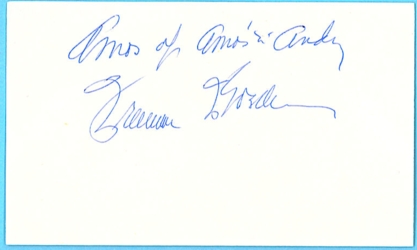 Amos of Amos 'n' Andy
Freeman Gosden